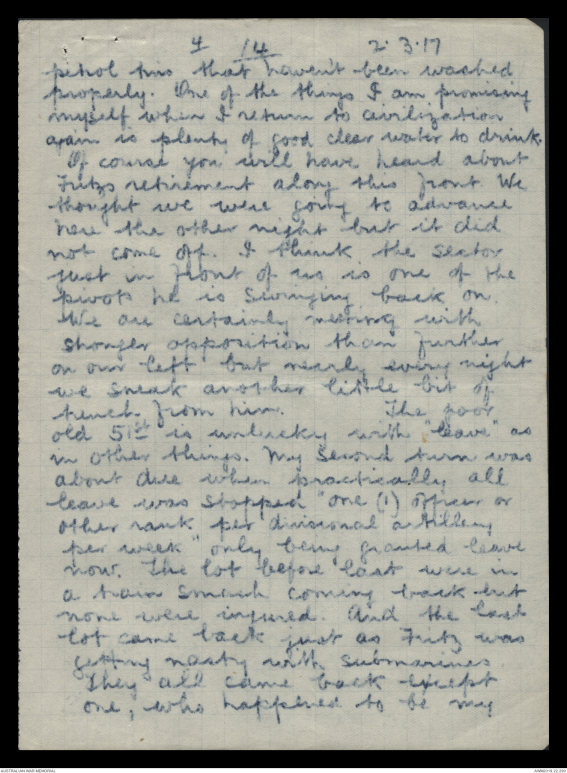 4 14 2.3.17
petrol tins that haven't been washed
properly. One of the things I am promising
myself when I return to civilization
again is plenty of good clear water to drink.
Of course you will have heard about
Fritz's retirement along this front. We
thought we were going to advance
here the other night but it did
not come off. I think the sector
just in front of us is one of the
pivots he is swinging back on.
We are certainly meeting with
stronger opposition than further
on our left but nearly every night
we sneak another little bit of
trench from him. The poor
old 51st is unlucky with "leave" as
in other things. My second turn was
about due when practically all
leave was stopped "one (1) officer or
other rank per divisional artillery
per week" only being granted leave
now. The lot before last were in
a train smash coming back but
none were injured. And the last
lot came back just as Fritz was
getting nasty with submarines.
They all came back except
one, who happened to be my
AUSTRALIAN WAR MEMORIAL